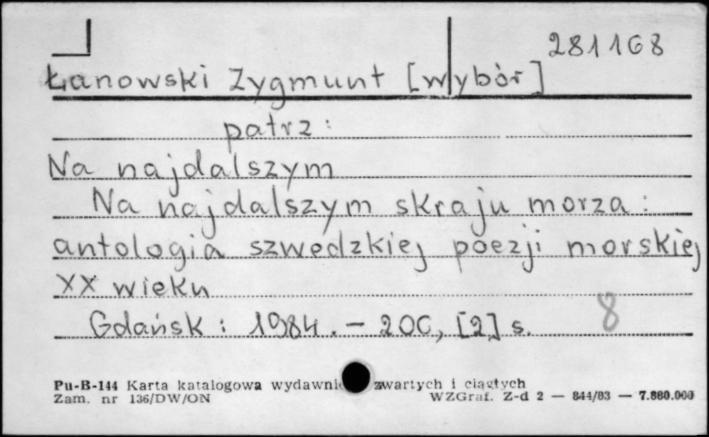 281168
Łanowski Zygmunt [wybór]
patrz:
Na najdalszym
Na najdalszym skraju morza :
antologia szwedzkiej poezji morskiej
XX wieku
Gdańsk : 1984. – 200, [2] s.
8
Pu-B-144 Karta katalogowa wydawnictw zwartych i ciągłych
Zam. nr 136/DW/ON WZGraf. Z-d 2 — 844/83 — 7.880.000